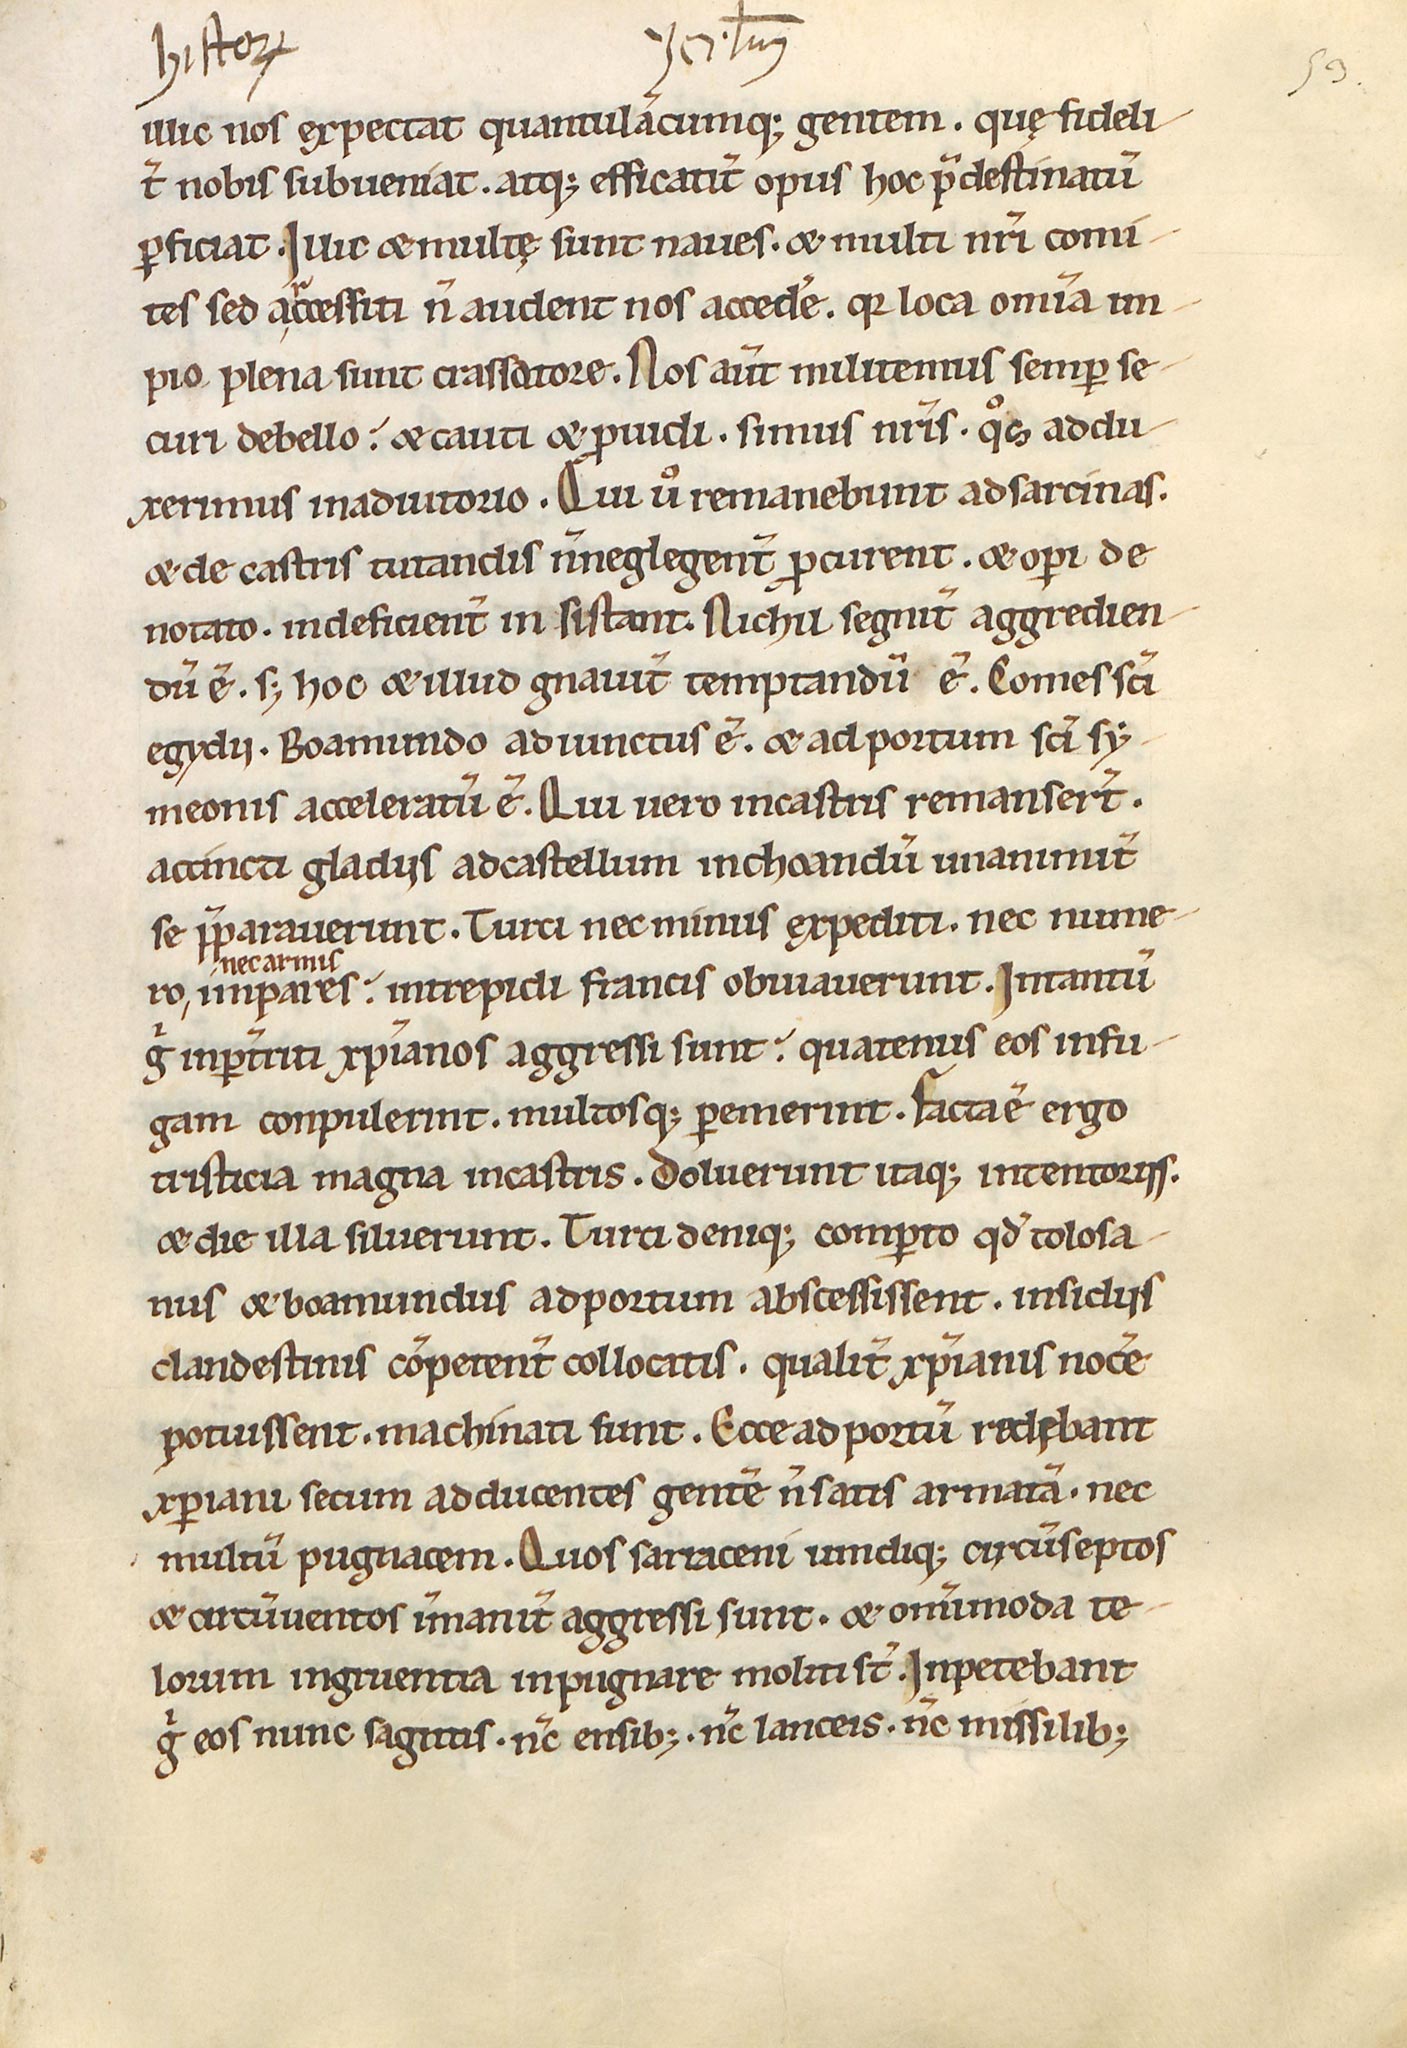 histor
53.
illic nos expectat quantulācumq; gentem. quę fideli-
t̄ nobis subueniat. atq; efficatit̄ opus hoc p̄destinatū
ꝑficiat. Illic & multę sunt naues. & multi nr̄i comi-
tes sed arccessiti n̄ audent nos acced̄e. qr loca omīa im-
pio plena sunt crassatore. Nos aūt militemus semꝑ se-
curi debello? & cauti & ꝓuidi. simus nr̄is. qͦs addu-
xerimus inadiutorio. Qui uͦ remanebunt adsarcinas.
& de castris tutandis n̄neglegent̄ ꝓcurent. & oꝑi de
notato. indeficient̄ in sistant. Nichil segnit̄ aggredien-
dū ē. s; hoc & illud gnauit̄ temptandū ē. Comes sc̄i
egydii. Boamundo adiunctus ē. & ad portum sc̄i sy-
meonis acceleratū ē. Qui uero incastris remanser̄t.
accincti gladiis adcastellum inchoandū unanimit̄
se p̄pararauerunt. Turci nec minus expediti. nec nume-
nec armis
ro, impares? intrepidi francis obuiauerunt. Intantū
g̊ inꝑt̄iti xp̄ianos aggressi sunt? quatenus eos infu-
gam conpulerint. multosq; ꝑemerint. Facta ē ergo
tristicia magna incastris. Doluerunt itaq; intentoriis.
& die illa siluerunt. Turci deniq; comꝑto qd̄ tolosa-
nus & boamundus adportum abscessissent. insidiis
clandestinis cōpetent̄ collocatis. qualit̄ xp̄ianis noc̄e
potuissent. machinati sunt. Ecce ad portū redębant
xꝑiani secum adducentes gentē n̄ satis armatā. nec
multū pugnacem. Quos sarraceni undiq; circūseptos
& circūuentos īmanit̄ aggressi sunt. & om̄imoda te-
lorum ingruentia inpugnare moliti st̄. Inpetebant
g̊ eos nunc sagittis. nc̄ ensib;. nc̄ lanceis. nc̄ missilib;